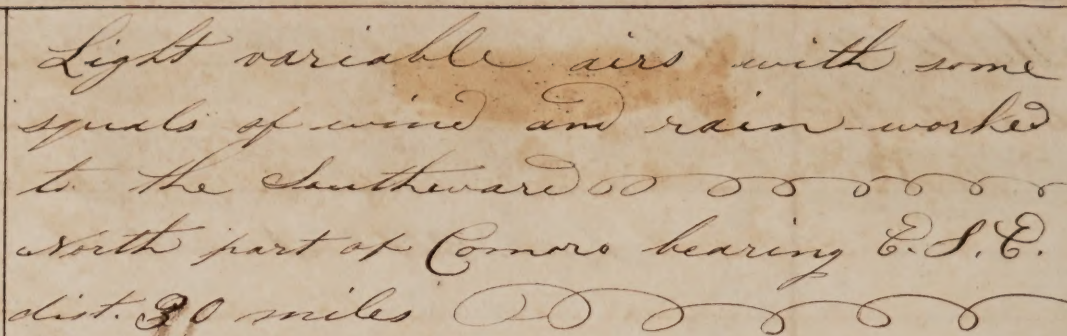 Light variable airs with some
squals of wind and rain - worked
to the Southward
North part of Comoro bearing E.S.E.
dist. 30 miles